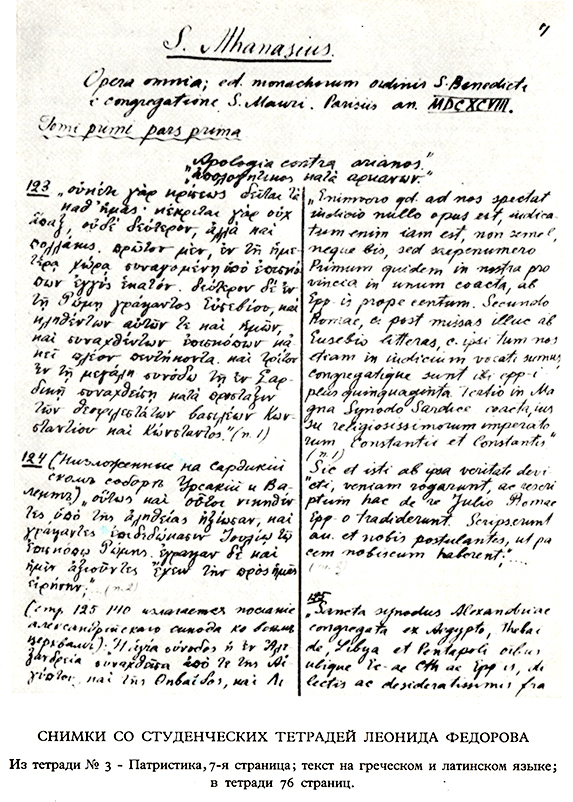 7
S. Athanasius.
Opera omnia; ed. monachorum ordinis S. Benedicti
e congregatione S. Mauri. Parisiis an. MDCXCVIII.
Tomi primi pars prima
„Apologia contra arianos"
„ἀπολογητικος κατὰ αρειανων."
123 „ουκέτι γὰρ κρίσεως δεῖται τὰ
καθ' ἡμᾶς. κέκριται γὰρ οὐχ
ἅπαξ, οὐδὲ δεύτερον, ἀλλὰ καὶ
πολλάκις. πρῶτον μὲν, ἐν τῇ ἡμε-
τέρᾳ χώρᾳ συναγομένῃ ὑπὸ ἐπισκό-
πων ἐγγὺς ἑκατόν. δεύτερον δὲ ἐν
τῇ Ῥώμῃ γράψαντος Εὐσεβίου, καὶ
κληθέντων αὐτῶν τε καὶ ἡμῶν,
καὶ συναχθέντων ἐπισκόπων κἀ-
κεῖ πλέον πεντήκοντα. καὶ τρίτον
ἐν τῇ μεγάλῃ συνόδῳ τῇ ἐν Σαρ-
δικῇ συναχθείσῃ κατὰ πρόσταξιν
τῶν θεοφιλεστάτων βασιλέων Κων-
σταντίου καὶ Κώνσταντος." (n. 1)
124 (Низложенные на сардикий
ском соборѣ Урсакий и Ва-
лентъ) „οὕτως καὶ οὗτοι νικηθέν
τες ὑπὸ τῆς ἀληθείας ἠξίωσαν, καὶ
γράψαντες ἐπιδιδώκασιν Ἰουλίῳ τῷ
ἐπισκόπῳ Ῥώμης. ἔγραψαν δὲ καὶ
ἡμῖν ἀξιοῦντες ἔχειν τὴν πρὸς ἡμᾶς
εἰρήνην;"... (n. 2)
(стр. 125 140 излагается посланіе
александрійскаго синода ко всѣмъ
церквамъ). Ἡ ἁγία σύνοδος ἡ ἐν Ἀλε
ξανδρείᾳ συναχθεῖσα ἀπό τε τῆς Αἰ-
γύπτου, καὶ τῆς Θηβαΐδος, καὶ Λι
„Enimvero qd. ad nos spectat
iudicio nullo opus est, iudica-
tum enim iam est, non semel,
neque bis, sed saepenumero
Primum quidem in nostra pro
vincia in unum coacta, ab
Epp-is prope centum. Secundo
Romae, c. post missas illuc ab
Eusebio litteras, c. ipsi tum nos
etiam in iudicium vocati sumus,
congregatique sunt ibi epp-i
plus quinquaginta. Tertio in Ma
gna Synodo Sardice coacta, ius
su religiosissimorum imperato
rum Constantii et Constantis"
(n. 1)
Sic et isti ab ipsa veritate devi
cti, veniam rogarunt, ac rescri
ptum hac de re Julio Romae
Epp-o tradiderunt. Scripserunt
au. et nobis postulantes, ut pa
cem nobiscum haberent;"....
(n. 2)
125
„Sancta synodus Alexandriae
congregata ex Aegypto, Thebai
de, Libya et Pentapoli oibus
ubique Ec-ae Cth-ae Epp-is, di
lectis ac desideratissimis fra
СНИМКИ СО СТУДЕНЧЕСКИХ ТЕТРАДЕЙ ЛЕОНИДА ФЕДОРОВА
Из тетради № 3 - Патристика, 7-я страница; текст на греческом и латинском языке;
в тетради 76 страниц.